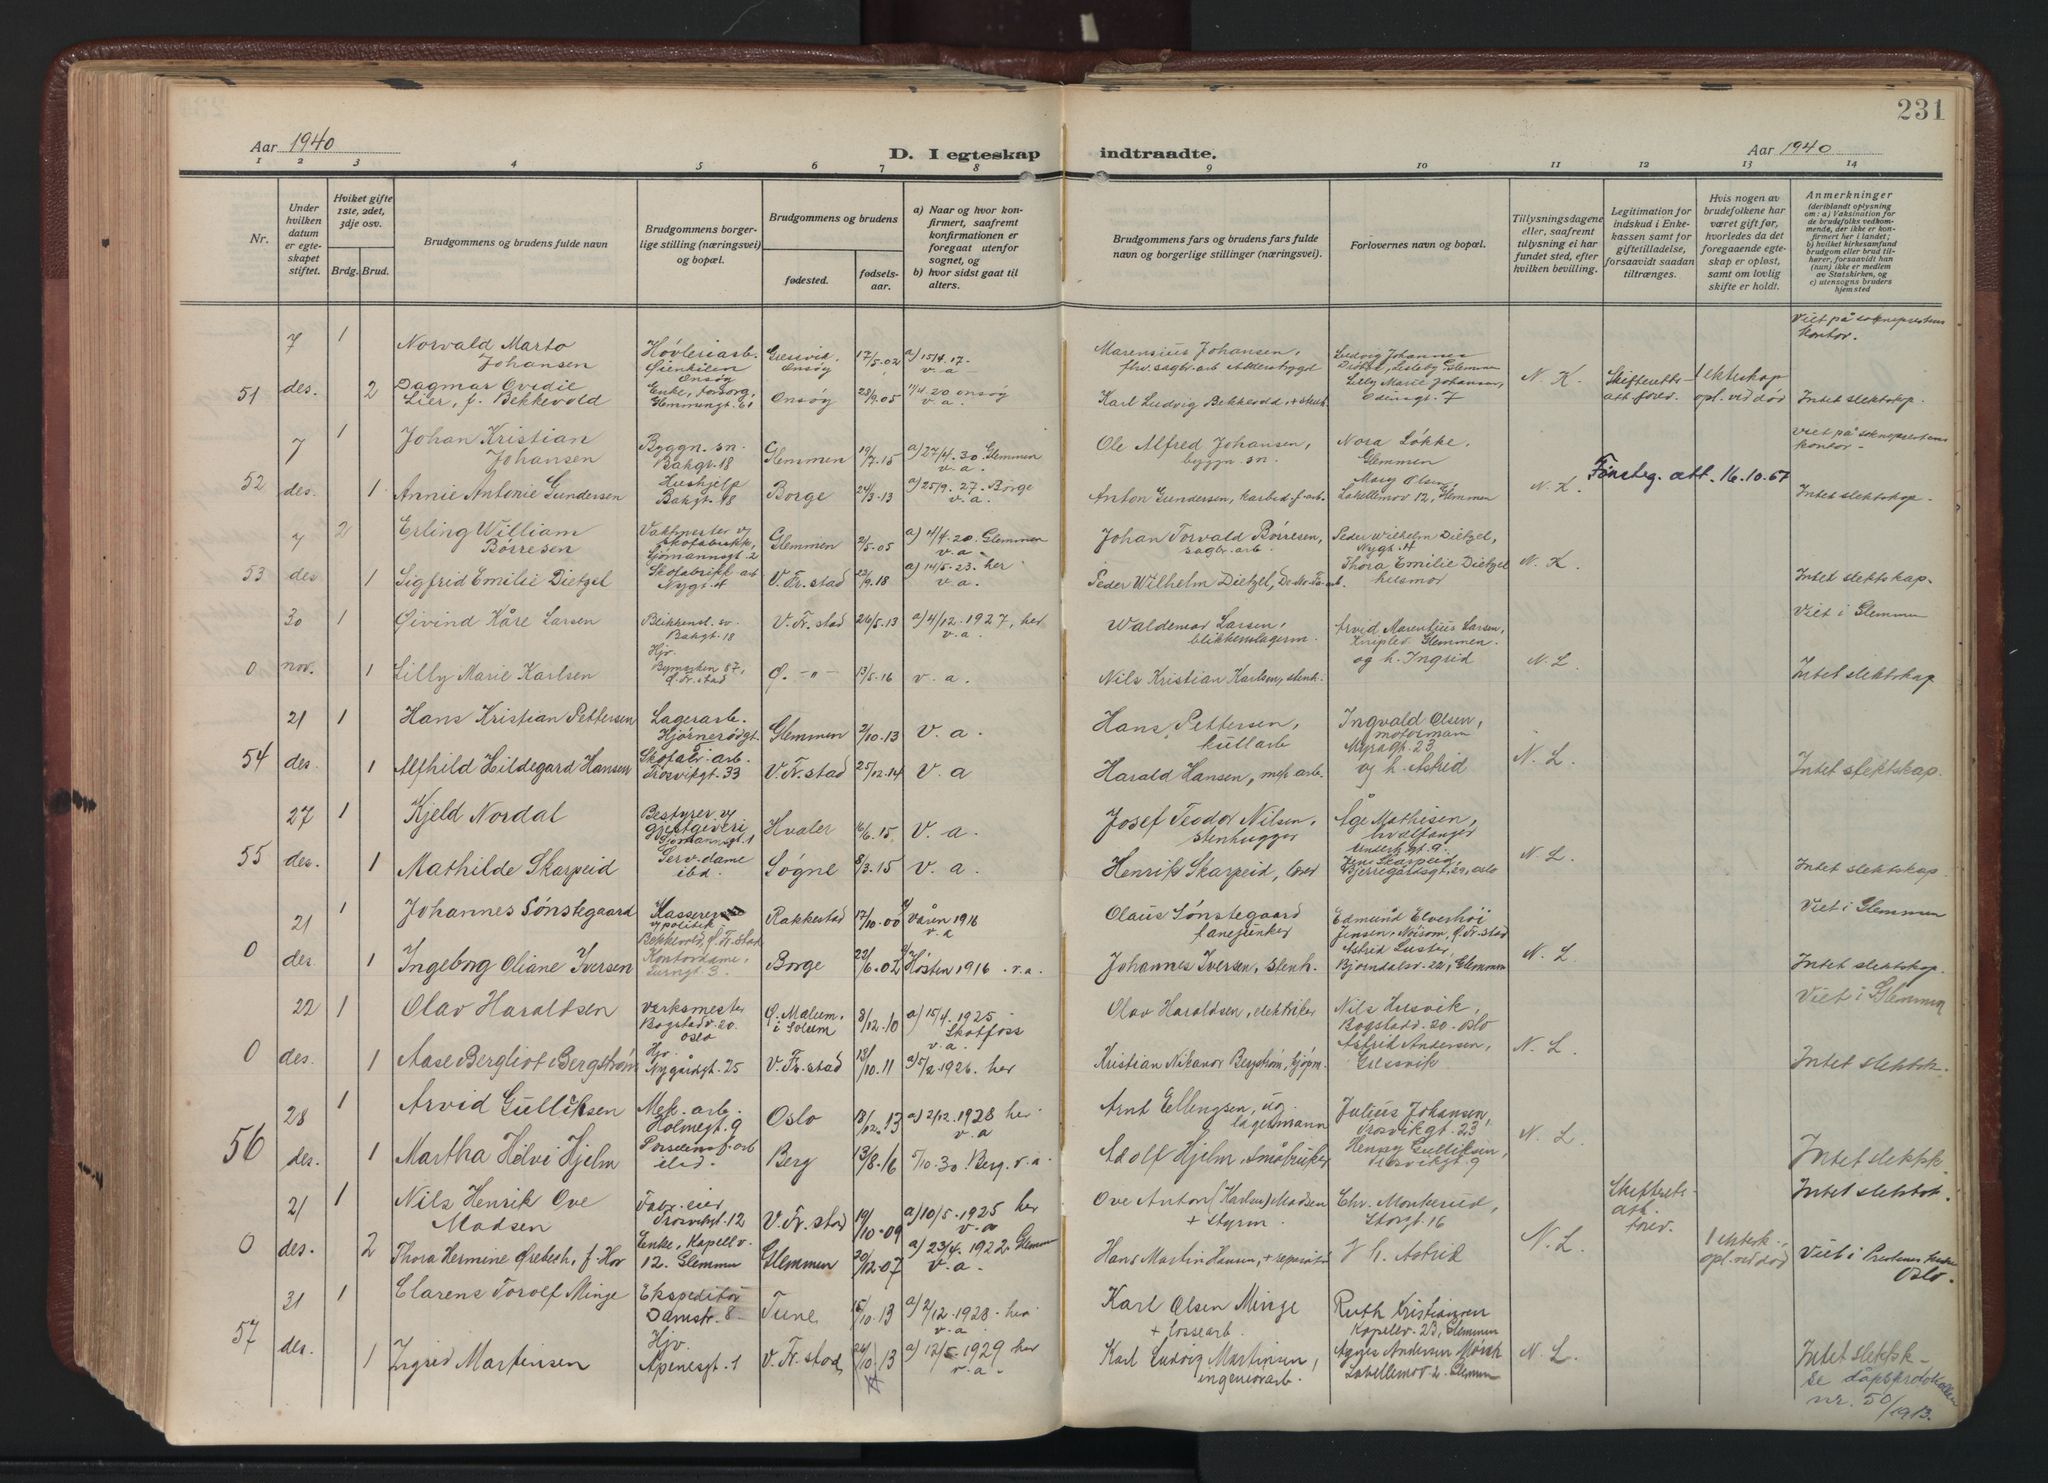 231
Aar 1940
D. I egteskap indtraadte.
Aar 1940
1 2 3 4 5 6 7 8 9 10 11 12 13 14
Nr.
Under hvilken datum er egteskapet stiftet.
Hviket gifte 1ste, 2det, 3dje osv.
Brdg. Brud.
Brudgommens og brudens fulde navn
Brudgommens borgerlige stilling (næringsvei) og bopæl.
Brudgommens og brudens
fødested.
fødselsaar.
a) Naar og hvor konfirmert, saafremt konfirmationen er foregaat utenfor sognet, og
b) hvor sidst gaat til alters.
Brudgommens fars og brudens fars fulde navn og borgerlige stillinger (næringsvei).
Forlovernes navn og bopæl.
Tillysningsdagene eller, saafremt tillysning ei har fundet sted, efter hvilken bevilling.
Legitimation for indskud i Enkekassen samt for giftetilladelse, forsaavidt saadan tiltrænges.
Hvis nogen av brudefolkene har været gift før, hvorledes da det foregaaende egteskap er opløst, samt om lovlig skifte er holdt.
Anmerkninger
(deriblandt oplysning om: a) Vaksination for de brudefolks vedkommende, der ikke er konfirmert her i landet; b) hvilket kirkesamfund brudgom eller brud tilhører, forsaavidt han (nun) ikke er medlem av Statskirken, og c) utensogns bruders hjemsted
7 1 Norvald Marto Johansen Høvleriarb. Onsøy 17/5.02 a) 15/4.17 v. a Marensius Johansen, Viet på sokneprestens kontor.
51 des. 2 Dagmar Ovedie Lier, f. Bekkevold Enke, forsorg, Glemmengt. 61 Onsøy 28/9.05 Onsøy v. a. Karl Ludvig Bekkevold Lilly Marie Johansen, Odinsgt. 7 N. K. Skifteretts att. forev. 1 ekteskap opl. ved død Intet slektskap.
7 1 Johan Kristian Johansen Byggn. sn. Bakgt. 18 Glemmen 19/7.15 a) 27/4.30 Glemmen v. a. Ole Alfred Johansen, byggn. sn. Nora Løkke, Glemmen Viet på sokneprestens kontor.
52 des. 1 Annie Antonie Gundersen Hushjelp Bakgt. 18 Borge 24/3.13 a) 25/9.27. Borge v. a. Anton Gundersen, karbid. f. arb. Mary Olsen, Labellenov 12, Glemmen N. K. Fønsteg. att. 16.10.67 Intet slektskap.
7 2 Erling William Børresen Vaktmester v/ skofabrikk, Sjømannsgt. 2 Glemmen 2/5.05 a) 11/4.20. Glemmen v. a. Johan Torvald Børresen, sagbr. arb. Peder Wilhelm Dietzel, Nygt. 4
53 des 1 Sigfrid Emilie Dietzel Skofabrikk arb Nygt. 4 V. Fr. stad 22/9.18 a) 14/5.23. her v. a. Peder Wilhelm Dietzel, Thora Emilie Dietzel husmor N. K. Intet slektskap.
30 1 Øivind Kåre Larsen Blikkensl. sv. Bakgt. 18 V. Fr. stad 26/5.13 a) 4/12.1927, her v. a. Waldemar Larsen, blikkenslagerm. Arvid Marentius Larsen, Glemmen. Viet i Glemmen
0 nov. 1 Lilly Marie Karlsen Hjv. Bymarken 87, Ø. Fr. stad Ø. -"- 13/5.16 v. a. Nils Kristian Karlsen, stenh. og h. Ingrid N. L. Intet slektskap
21 1 Hans Kristian Pettersen Lagerarb. Hjørnerødgt. Glemmen 2/10.13 v. a. Hans Pettersen, kullarb Ingvald Olsen, motormann Myragt. 23
54 des. 1 Alfhild Hildegard Hansen Skofabr. arb. Trosvikgt. 33 V. Fr. stad 25/12.14 v. a Harald Hansen, mek. arb. og h. Astrid N. L. Intet slektskap.
27 1 Kjeld Nordal Bestyrer v/ gjestgiveri Sjømannsgt. 1 Hvaler 16/6.15 v. a. Josef Teodor Nilsen, stenhugger Åge Mathisen, hvalfanger
55 des. 1 Mathilde Skarpeid Serv. dame ibd. Søgne 8/3.15 v. a. Henrik Skarpeid, Skarpeid, Bjerregårdsgt. 29, Oslo N. L. Intet slektskap.
21 1 Johannes Sønstegaard Kasserer v/ politik Bekkevold, Ø. Fr. stad Rakkestad 17/10.00 Våren 1916 v. a Olaus Sønstegaard fanejunker Edmund Elverhøi Jensen, Noisom, Ø. Fr. stad Viet i Glemmen
0 des. 1 Ingeborg Oliane Iversen Kontordame, Turngt. 3. Borge 22/6.02 Høsten 1916. v. a. Johannes Iversen, stenh. Astrid Luster, Bjørndalsv. 22, Glemmen N. L. Intet slektskap.
22 1 Olav Haraldsen Verksmester Bogstadv. 20. Oslo Ø. Malum. i Solum 8/12.10 a) 15/4.1925 Skotfoss v. a. Olav Haraldsen, elektriker Nils Husvik, Bogstadv. 20. Oslo Viet i Glemmen
0 des. 1 Aase Bergliot Bergstrøm Hjv. Nygårdgt. 25 V. Fr. stad 13/10.11 a) 5/2.1926. her Kristian Nikanor Bergstrøm, kjøpm. Astrid Andersen, Gressvik N. L. Intet slektsk.
28 1 Arvid Gulliksen Mek. arb. Holmegt. 9 Oslo 18/12.13 a) 2/12.1928 her v. a Arnt Ellingsen, lagermann Julius Johansen, Trosvikgt. 23
56 des. 1 Martha Helvi Hjelm Porselensf. arb ibd. Berg 13/8.16 5/10.30 Berg. v. a. Adolf Hjelm, småbruker Henry Gulliksen, Trosvikgt. 9 N. L. Intet slektsk.
21 1 Nils Henrik Ove Madsen Fabr. eier Trosvikgt. 12 V. Fr. stad 19/10.09 a) 10/5.1925 her v. a Ove Anton (Karlsen) Madsen + Styrm. Chr. Monkerud, Storgt. 16 Skifterets att. forev. Intet slektsk.
0 des. 2 Thora Hermine f. Hov Enke, Kapellv. 12. Glemmen Glemmen 20/12.07 a) 23/4.1922 Glemmen v. a. Hans Martin Hansen, + h. Astrid N. L. 1 ektesk., opl. ved død Viet i Prestens kirke Oslo.
31 1 Clarens Torolf Minge Ekspeditør Damstr. 8 Tune 15/10.13 a) 2/12.1928. her v. a. Karl Olsen Minge + lossearb. Ruth Kristiansen Kapellv. 23, Glemmen
57 des. 1 Ingrid Martinsen Hjv. Apenesgt. 1 V. Fr. stad 26/10.13 a) 12/5.1929 her v. a. Karl Ludvig Martinsen, ingeniørarb. Agnes Andersen Mørch Labellenov. 2. Glemmen N. L. Intet slektsk.
se dåpsprotokollen nr. 50/1913.